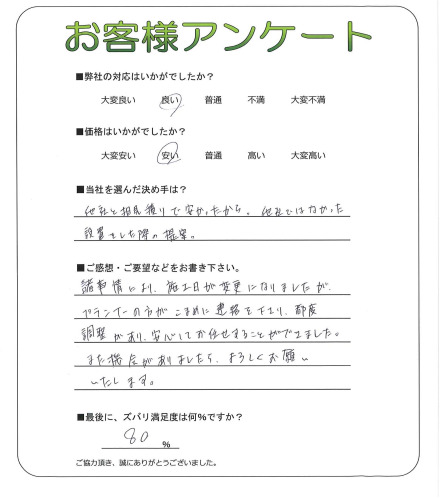 お客様アンケート
■弊社の対応はいかがでしたか？
大変良い 良い 普通 不満 大変不満
■価格はいかがでしたか？
大変安い 安い 普通 高い 大変高い
■当社を選んだ決め手は？
他社と相見積りで安かったから。他社ではなかった
設置をした際の提案。
■ご感想・ご要望などをお書き下さい。
諸事情により、施工日が変更になりましたが、
プランナーの方がこまめに連絡を下さり、都度
調整があり、安心してお任せすることができました。
また機会がありましたら、よろしくお願い
いたします。
■最後に、ズバリ満足度は何％ですか？
80 %
ご協力頂き、誠にありがとうございました。